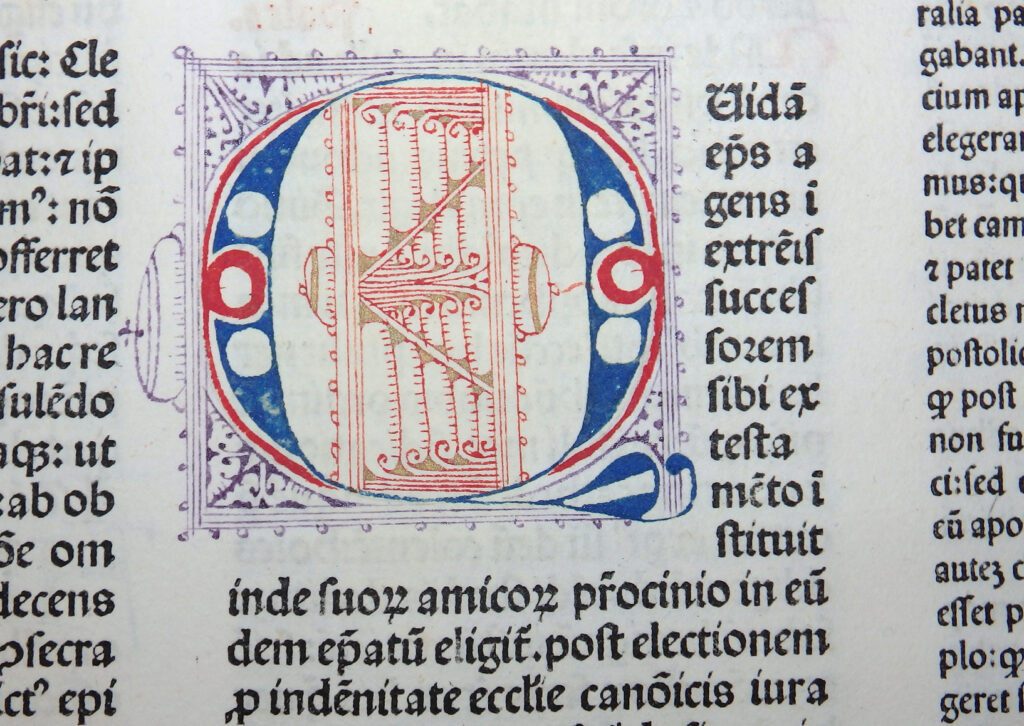 ſic: Cle
br̃i:ſed
at:⁊ ip
mꝰ: nõ
offerret
ero lan
hac re
ſulẽdo
aqꝫ: ut
:ab ob
õe om
decens
ſecra
ctꝰ epi
Q
Uidã
ep̃s a
gens ĩ
extrẽiſ
ſucceſ
ſorem
ſibi ex
teſta
mẽto ĩ
ſtituit
inde ſuoꝝ amicoꝝ pr̃ocinio in eũ
dem ep̃atũ eligit̃.poſt electionem
ꝓ indẽnitate eccl̃ie canõicis iura
ralia pa
gabant.
cium ap
elegeran
mus:qu
bet cam
⁊ patet
cletus
poſtolic
ꝙ poſt
non fu
ci:ſed
eũ apo
auteꝫ c
eſſet p
plo:ꝙ
geret